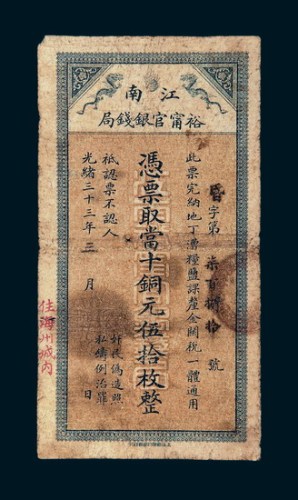 江南
裕甯官銀錢局
此票完納地丁漕糧鹽課釐金關稅一體通用
字第柒百捌拾號
憑票取當十銅元伍拾枚整
祇認票不認人
光緒三十三年三月 日
奸民偽造照
私鑄例治罪
住海州城內